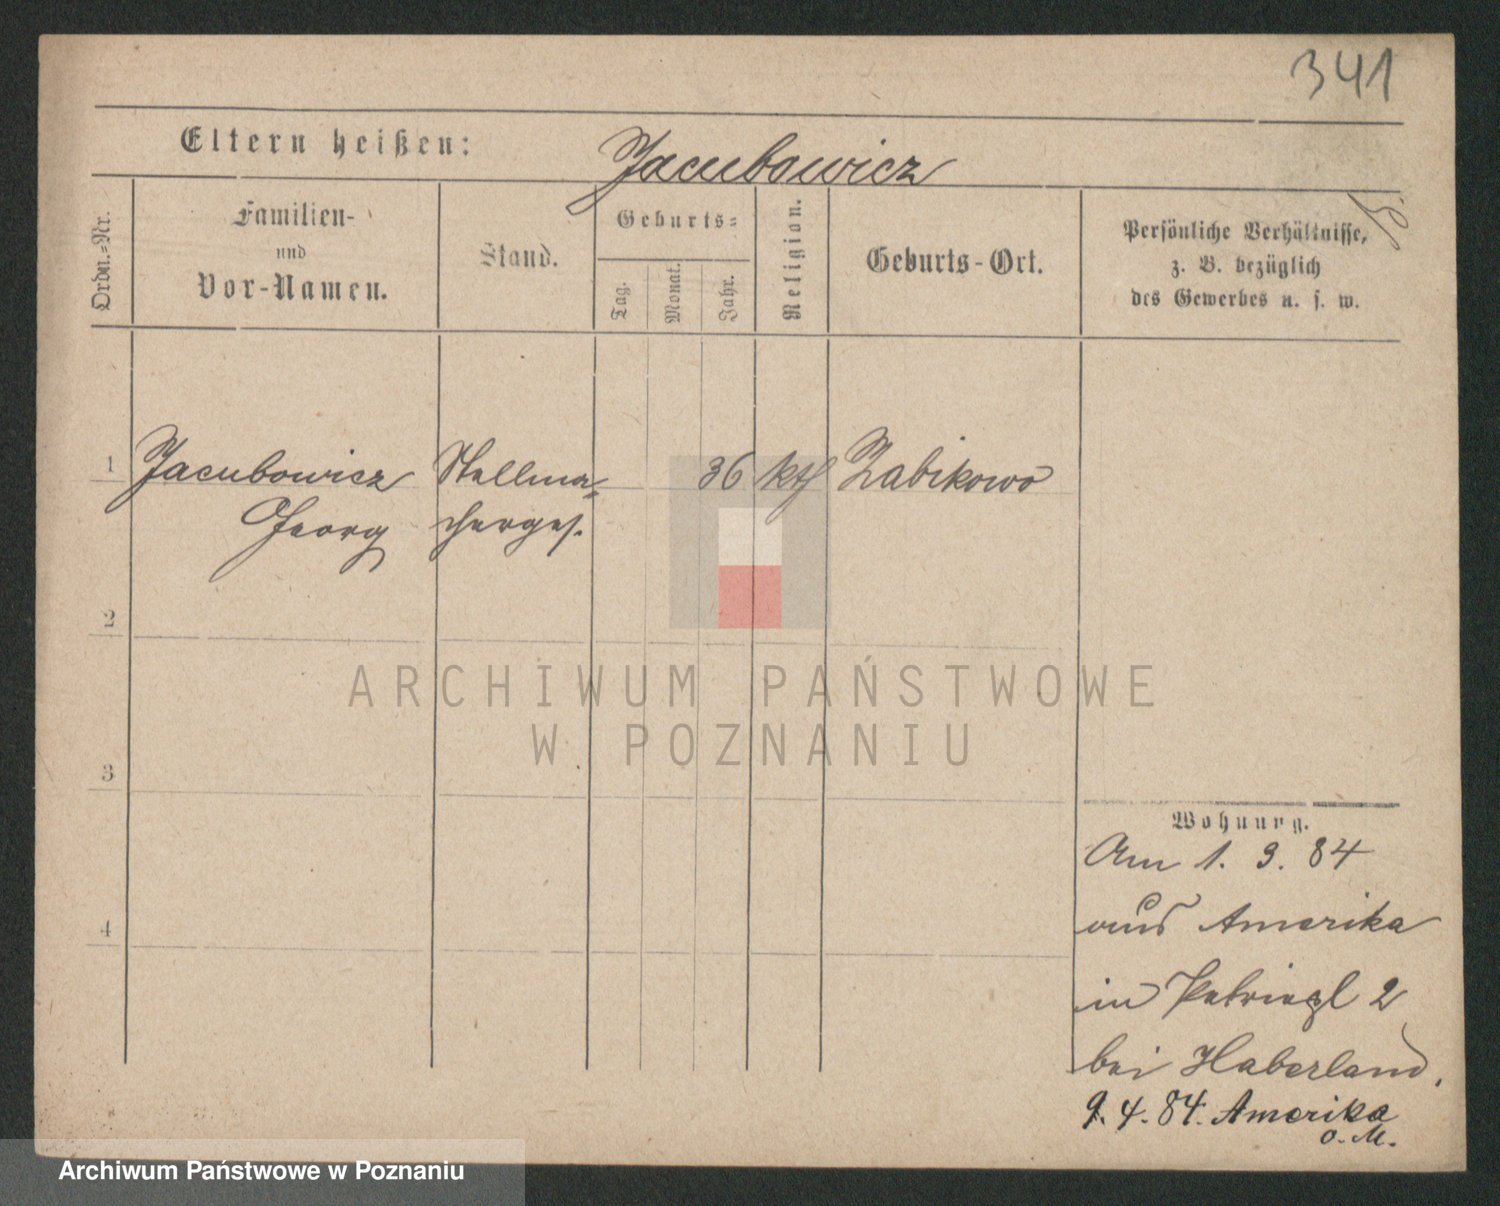 341
Eltern heißen: Jacubowicz
Ordn.-Nr.
Familien-
und
Vor-Namen.
Stand.
Geburts-
Tag.
Monat.
Jahr.
Religion.
Geburts-Ort.
Persönliche Verhältnisse,
z. B. bezüglich
des Gewerbes u. s. w.
1 Jacubowicz Stellma- 36 kth Zabikowo
Georg cherges.
2
3
4
Wohnung.
Am 1. 3. 84
aus Amerika
in Petriepl 2
bei Haberland.
9. 4. 84. Amerika
o. M.
ARCHIWUM PAŃSTWOWE
W POZNANIU
Archiwum Państwowe w Poznaniu